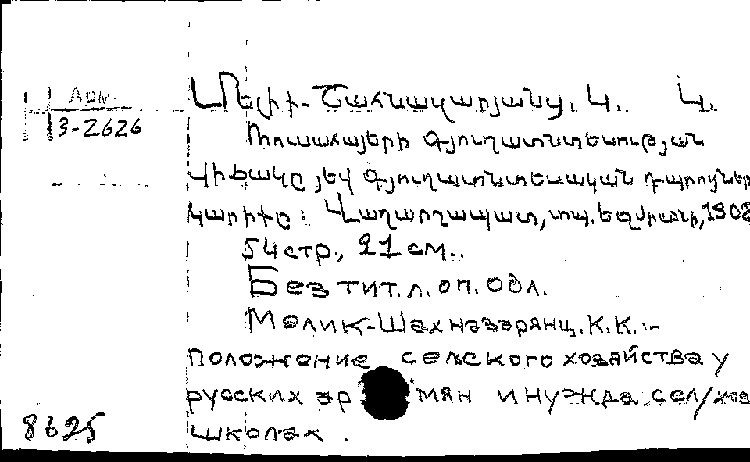 Арм.
3-2626
Մելիք-Շահնազարյանց. Կ. Կ.
Ռուսահայերի գյուղատնտեսության
վիճակը յեվ գյուղատնտեսական դպրոցներ
կարիքը: Վաղարշապատ, տպ. Եջմիածնի, 1908
54 стр., 21 см..
Без тит. л. оп. обл.
Мелик-Шахназарянц. К. К. -
положение селского хозяйства у
русских ар мян и нужда сел/хоз
школах.
8625